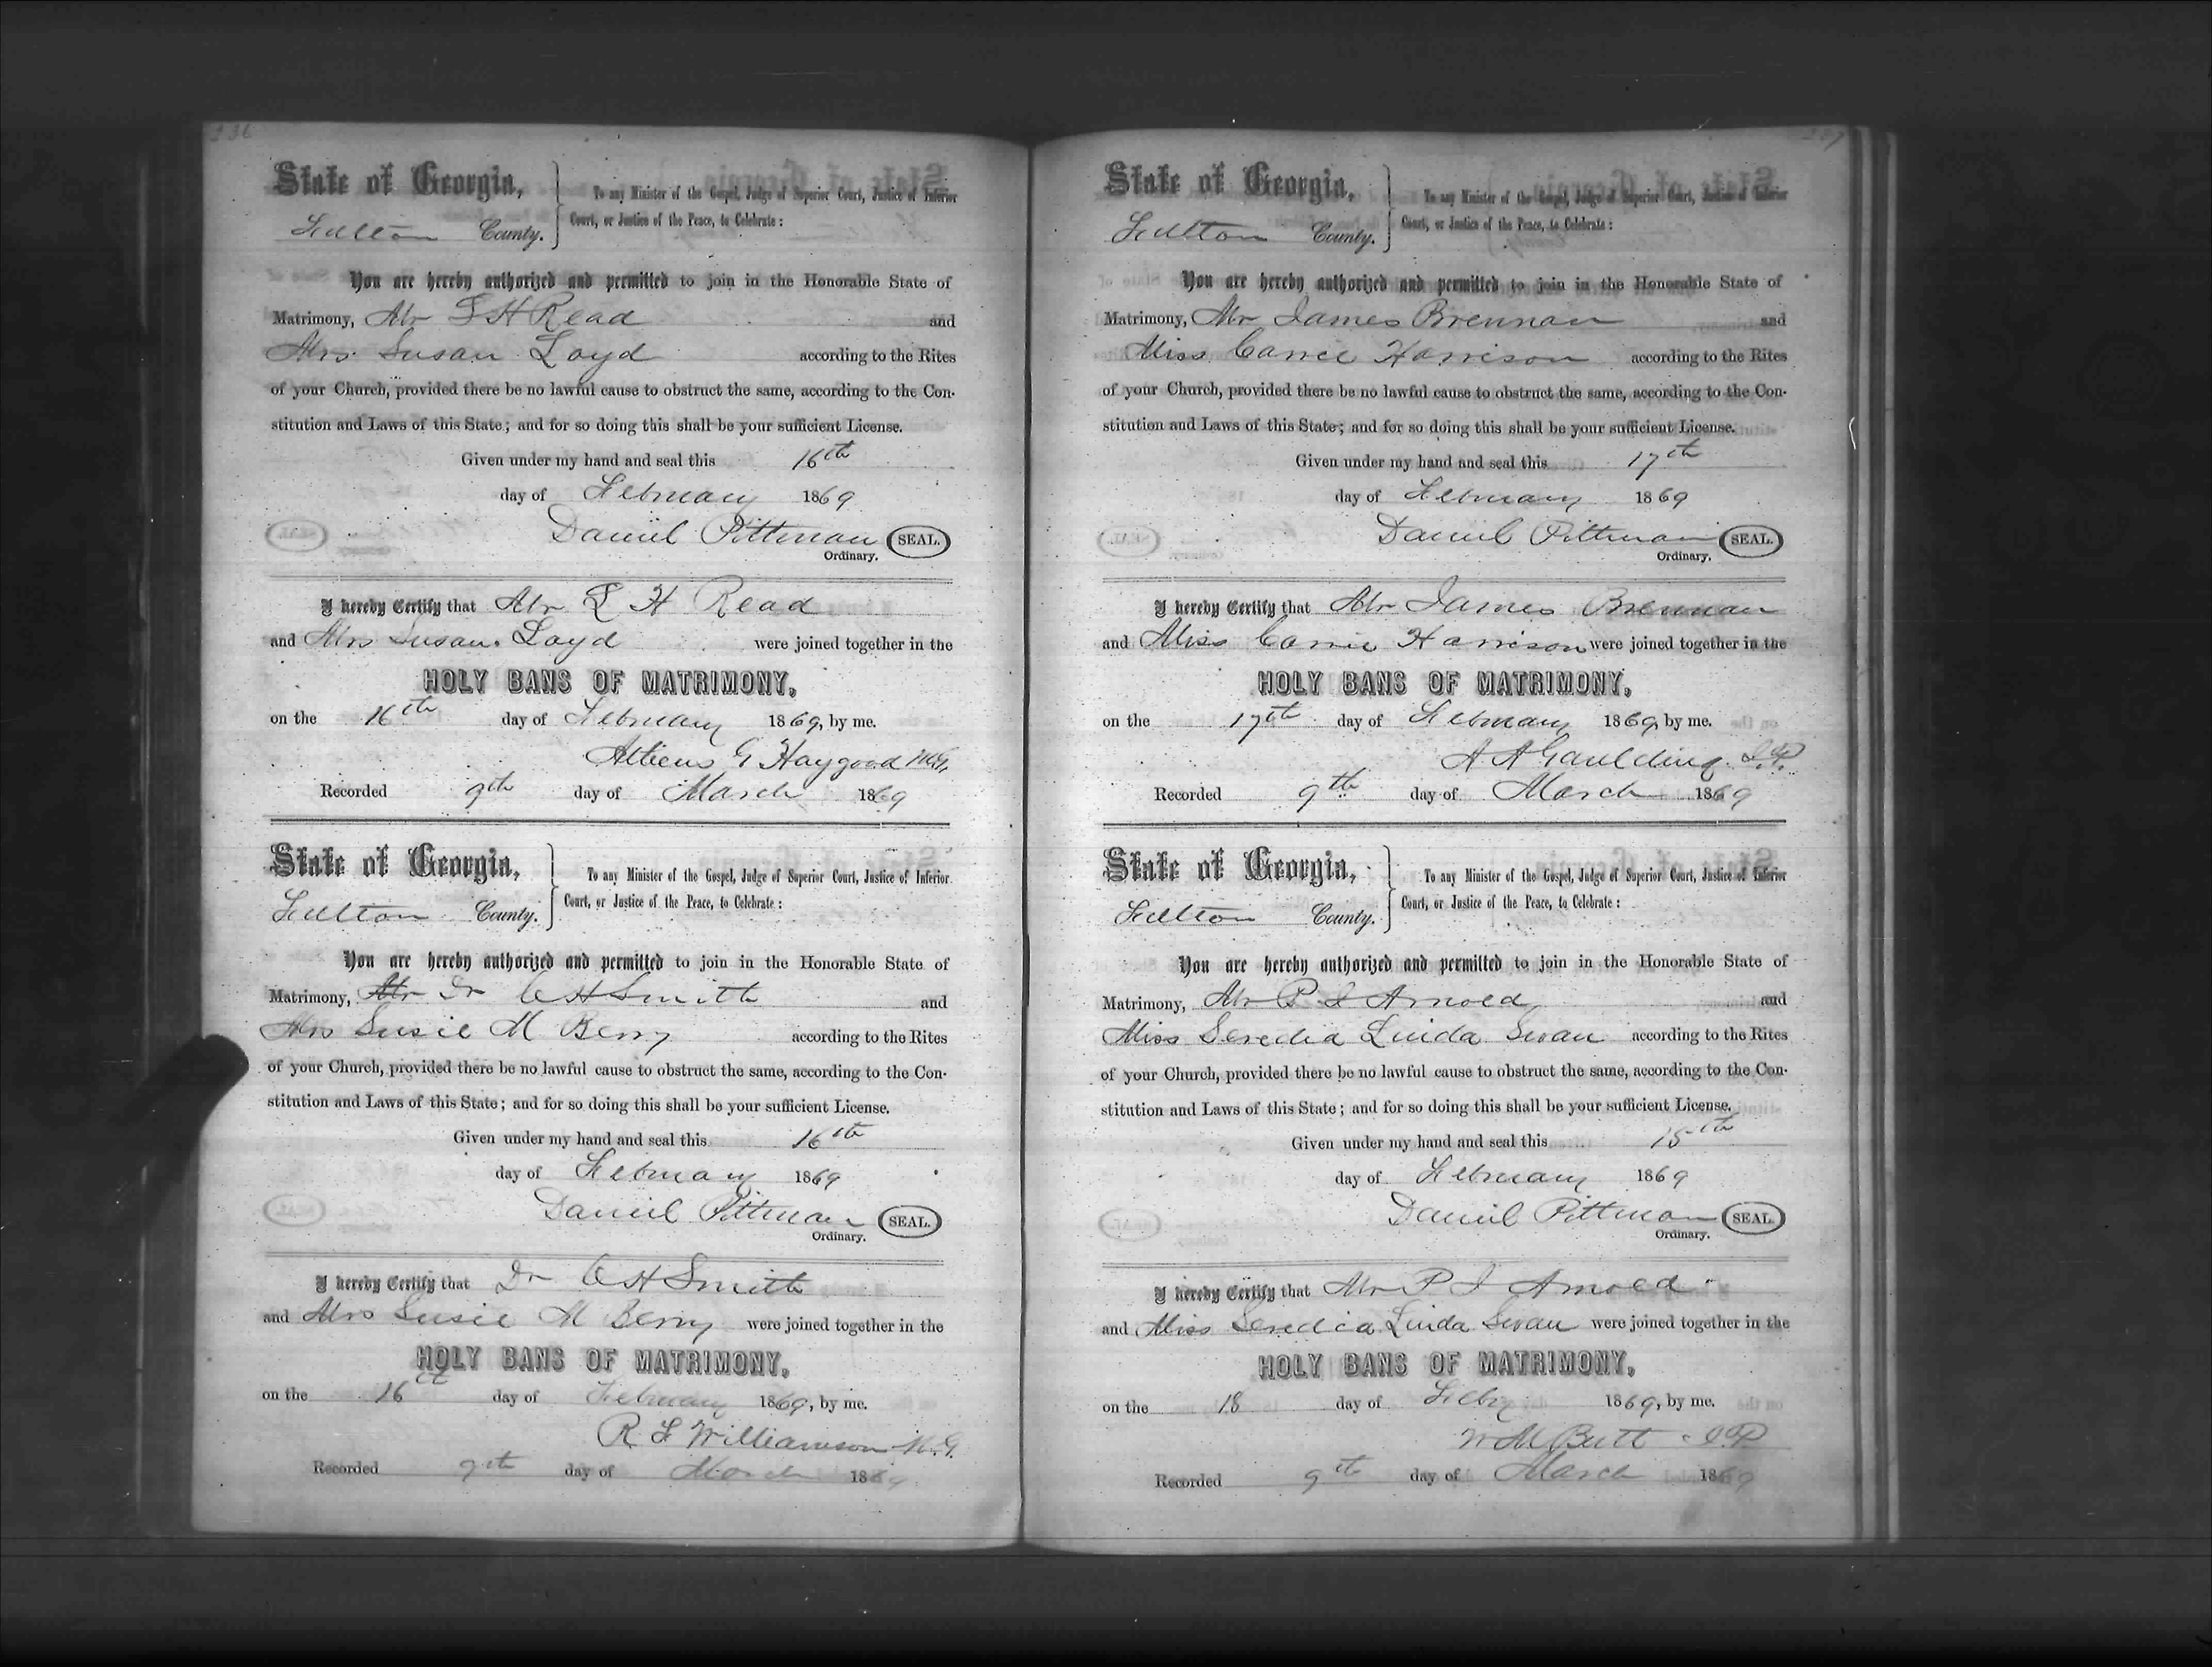 236
State of Georgia,
Fulton County.
To any Minister of the Gospel, Judge of Superior Court, Justice of Inferior
Court, or Justice of the Peace, to Celebrate:
You are hereby authorized and permitted to join in the Honorable State of
Matrimony, Mr L H Read and
Mrs Susan Loyd according to the Rites
of your Church, provided there be no lawful cause to obstruct the same, according to the Con-
stitution and Laws of this State; and for so doing this shall be your sufficient License.
Given under my hand and seal this 16th
day of February 1869
Daniel Pittman SEAL.
Ordinary.
I hereby Certify that Mr L H Read
and Mrs Susan Loyd were joined together in the
HOLY BANS OF MATRIMONY,
on the 16th day of February 1869, by me.
Atticus G Haygood M.G.
Recorded 9th day of March 1869
State of Georgia,
Fulton County.
To any Minister of the Gospel, Judge of Superior Court, Justice of Inferior
Court, or Justice of the Peace, to Celebrate:
You are hereby authorized and permitted to join in the Honorable State of
Matrimony, Mr Dr C H Smith and
Mrs Susie M Berry according to the Rites
of your Church, provided there be no lawful cause to obstruct the same, according to the Con-
stitution and Laws of this State; and for so doing this shall be your sufficient License.
Given under my hand and seal this 16th
day of February 1869
Daniel Pittman SEAL.
Ordinary.
I hereby Certify that Dr C H Smith
and Mrs Susie M Berry were joined together in the
HOLY BANS OF MATRIMONY,
on the 16th day of February 1869, by me.
R F Williamson M.G.
Recorded 9th day of March 1869
237
State of Georgia,
Fulton County.
To any Minister of the Gospel, Judge of Superior Court, Justice of Inferior
Court, or Justice of the Peace, to Celebrate:
You are hereby authorized and permitted to join in the Honorable State of
Matrimony, Mr James Brennan and
Miss Carrie Harrison according to the Rites
of your Church, provided there be no lawful cause to obstruct the same, according to the Con-
stitution and Laws of this State; and for so doing this shall be your sufficient License.
Given under my hand and seal this 17th
day of February 1869
Daniel Pittman SEAL.
Ordinary.
I hereby Certify that Mr James Brennan
and Miss Carrie Harrison were joined together in the
HOLY BANS OF MATRIMONY,
on the 17th day of February 1869, by me.
A A Gaulding J.P.
Recorded 9th day of March 1869
State of Georgia,
Fulton County.
To any Minister of the Gospel, Judge of Superior Court, Justice of Inferior
Court, or Justice of the Peace, to Celebrate:
You are hereby authorized and permitted to join in the Honorable State of
Matrimony, Mr P I Arnold and
Miss Seredia Linda Swan according to the Rites
of your Church, provided there be no lawful cause to obstruct the same, according to the Con-
stitution and Laws of this State; and for so doing this shall be your sufficient License.
Given under my hand and seal this 15th
day of February 1869
Daniel Pittman SEAL.
Ordinary.
I hereby Certify that Mr P I Arnold
and Miss Seredia Linda Swan were joined together in the
HOLY BANS OF MATRIMONY,
on the 18 day of Feby 1869, by me.
W M Butt J.P
Recorded 9th day of March 1869